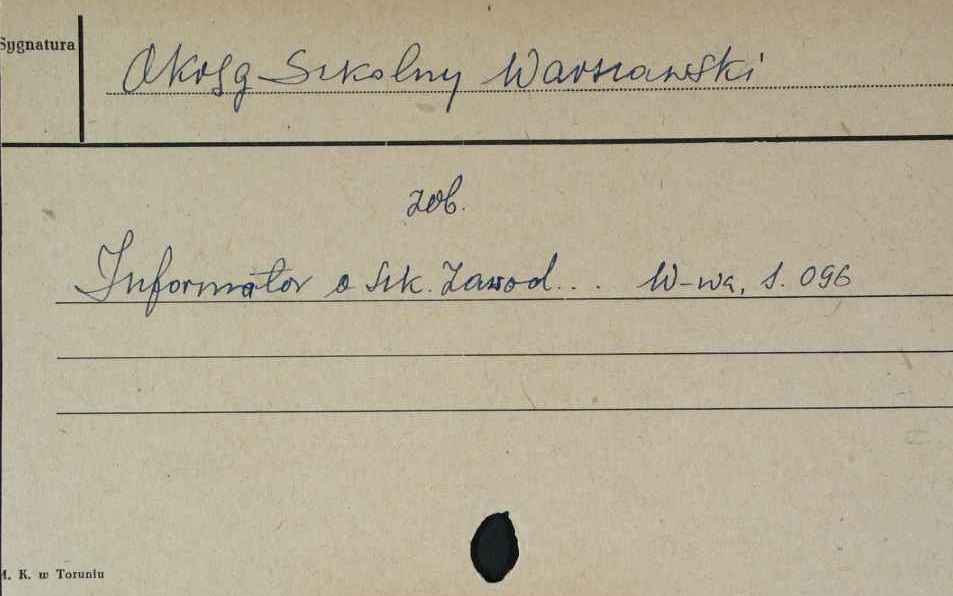 Sygnatura
Okręg Szkolny Warszawski
zob.
Informator o szk. zawod... W-wa, S. 096
M. K. w Toruniu